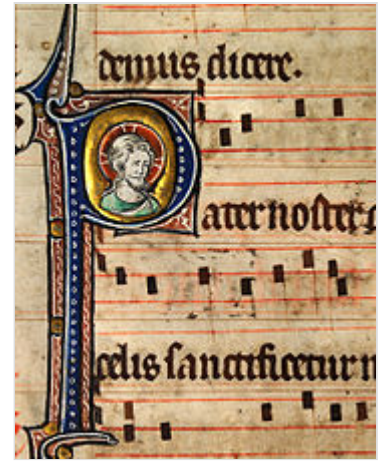 demus dicere.
Pater noster
celis sanctificetur